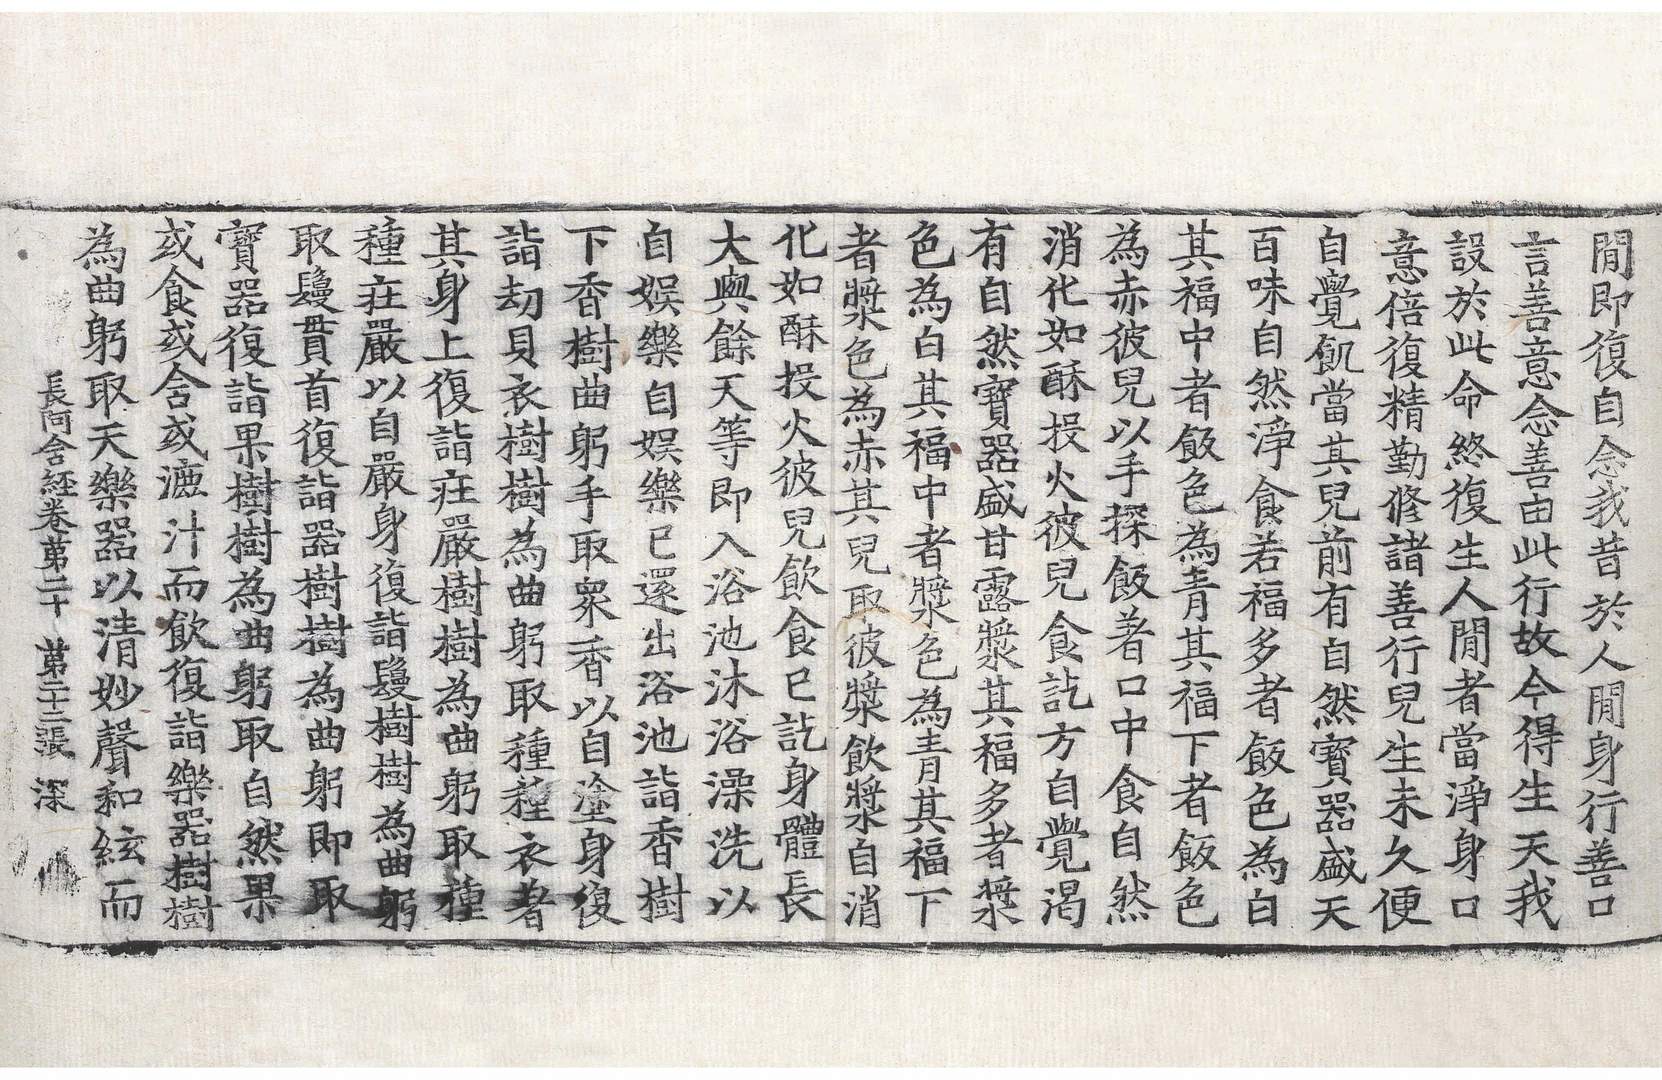 間即復自念我昔於人間身行善口
言善意念善由此行故今得生天我
設於此命終復生人間者當淨身口
意倍復精勤修諸善行兒生未久便
自覺飢當其兒前有自然寶器盛天
百味自然淨食若福多者飯色為白
其福中者飯色為青其福下者飯色
為赤彼兒以手探飯著口中食自然
消化如酥投火彼兒食訖方自覺渴
有自然寶器盛甘露漿其福多者漿
色為白其福中者漿色為青其福下
者漿色為赤其兒取彼漿飲漿自消
化如酥投火彼兒飲食已訖身體長
大與餘天等即入浴池沐浴澡洗以
自娛樂自娛樂已還出浴池詣香樹
下香樹曲躬手取眾香以自塗身復
詣劫貝衣樹樹為曲躬取種種衣著
其身上復詣莊嚴樹樹為曲躬取種
種莊嚴以自嚴身復詣鬘樹樹為曲躬
取鬘貫首復詣器樹樹為曲躬即取
寶器復詣果樹樹為曲躬取自然果
或食或含或漉汁而飲復詣樂器樹樹
為曲躬取天樂器以清妙聲和絃而
長阿含經卷第二十　第二十三張　深